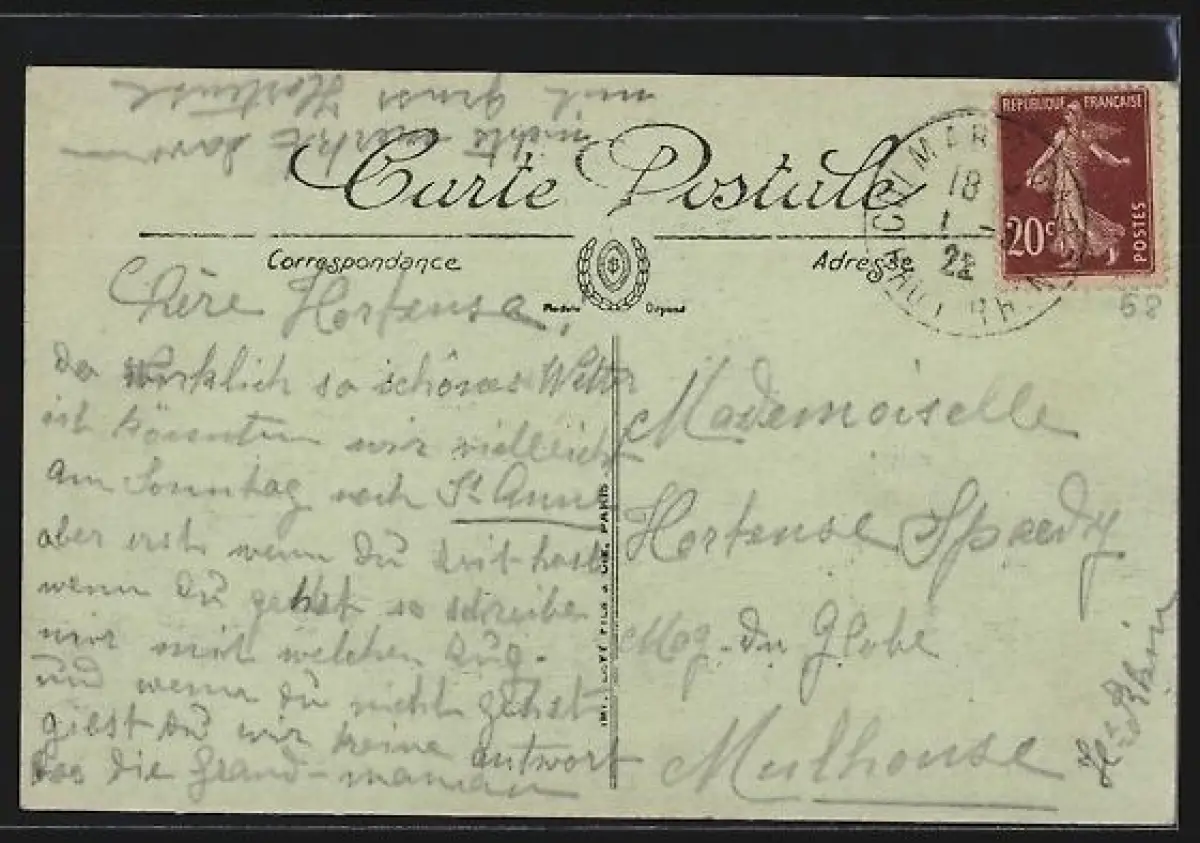 mit gruss Hortense
nichts davon
Carte Postale
Correspondance
Adresse
REPUBLIQUE FRANÇAISE
20c
POSTES
COLMAR
18
1
22
HAUT-RHIN
68
Modèle Déposé
Chère Hortensa,
Da wirklich so schönes Wetter
ist könnten wir vielleicht
am Sonntag nach St Anne
aber erst wenn Du Zeit hast
wenn Du gehst so schreibe
mir mit welchen Zug.
und wenn Du nicht gehst
giebst Du mir keine antwort
das die Grand-maman
PARIS
Mademoiselle
Hortense Spaedy
Mag. du Globe
Mulhouse
Ht Rhin